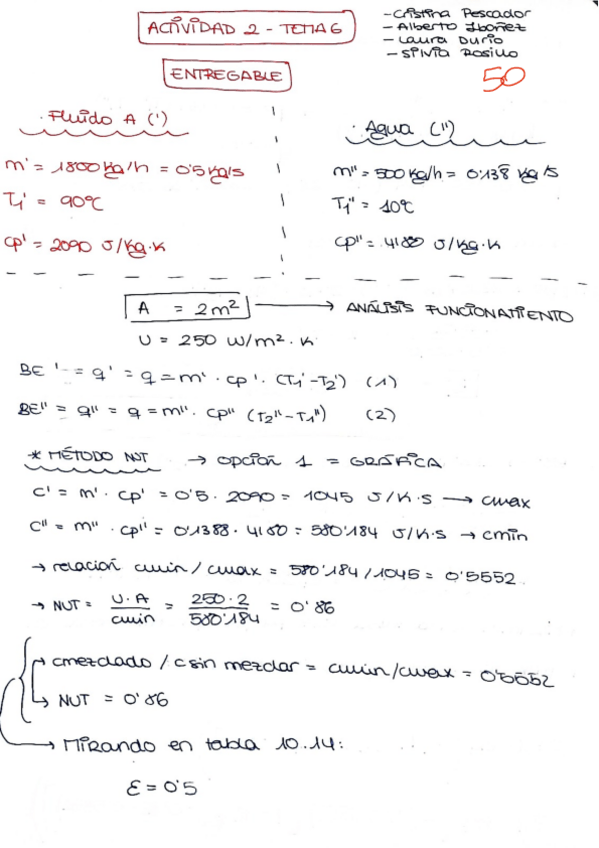 ACTIVIDAD 2 - TEMA 6
- Cristina Pescador
- Alberto Ibáñez
- Laura Durio
- Silvia Rosillo
ENTREGABLE
50
· Fluido A (')
m' = 1800 kg/h = 0'5 kg/s
T1' = 90ºC
cp' = 2090 J/kg·K
· Agua ('')
m'' = 500 kg/h = 0'138 kg/s
T1'' = 10ºC
cp'' = 4180 J/kg·K
A = 2m² → ANÁLISIS FUNCIONAMIENTO
U = 250 W/m²·K
BE' = q' = q = m' · cp' · (T1' - T2') (1)
BE'' = q'' = q = m'' · cp'' (T2'' - T1'') (2)
* MÉTODO NUT → opción 1 = GRÁFICA
C' = m' · cp' = 0'5 · 2090 = 1045 J/K·s → cmax
C'' = m'' · cp'' = 0'1388 · 4180 = 580'184 J/K·s → cmin
→ relación cmin / cmax = 580'184 / 1045 = 0'5552
→ NUT = U·A / cmin = 250·2 / 580'184 = 0'86
→ cmezclado / c sin mezclar = cmin/cmax = 0'5552
→ NUT = 0'86
→ Mirando en tabla 10.14:
ε = 0'5